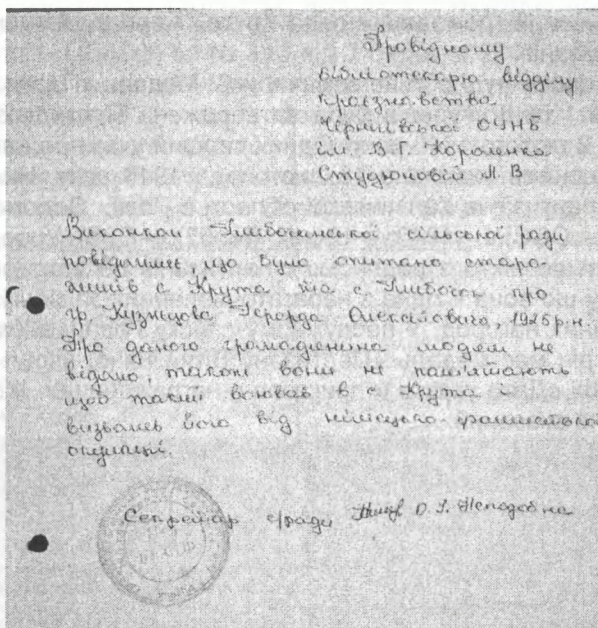 Провідному
бібліотекарю відділу
краєзнавства
Чернігівської ОУНБ
ім. В. Г. Короленка
Студьоновій Л. В
Виконком Глибочинської сільської ради
повідомляє, що було опитано старо-
жилів с. Крута та с. Глибочок про
гр. Кузнецова Герарда Олексійовича, 1925 р.н.
Про даного громадянина людям не
відомо, також вони не пам'ятають
щоб такий воював в с. Крута
визволяв його від німецько-фашистської
окупації.
Секретар с/ради О. І.